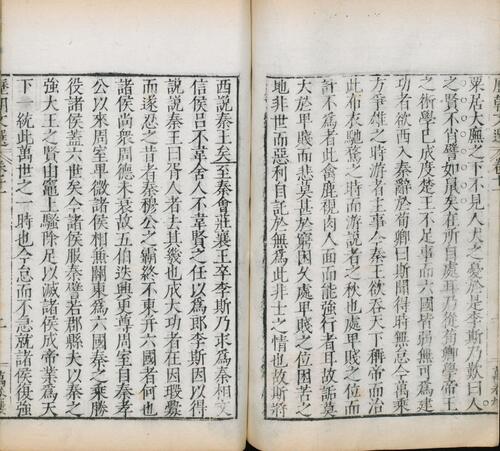 粟居大廡之下不見人犬之憂於是李斯乃歎曰人
之賢不肖譬如鼠矣在所自處耳乃從荀卿學帝王
之術學已成度楚王不足事而六國皆弱無可爲建
功者欲西入秦辭於荀卿曰斯聞得時無怠今萬乘
方爭雄之時游者主事今秦王欲吞天下稱帝而治
此布衣馳騖之時而游說者之秋也處卑賤之位而
計不爲者此禽鹿視肉人面而能強行者耳故詬莫
大於卑賤而悲莫甚於窮困久處卑賤之位困苦之
地非世而惡利自託於無爲此非士之情也故斯將
西說秦王矣至秦會莊襄王卒李斯乃求爲秦相文
信侯呂不韋舍人不韋賢之任以爲郎李斯因以得
說說秦王曰胥人者去其幾也成大功者在因瑕釁
而遂忍之昔者秦穆公之霸終不東并六國者何也
諸侯尚衆周德未衰故五伯迭興更尊周室自秦孝
公以來周室卑微諸侯相兼關東爲六國秦之乘勝
役諸侯蓋六世矣今諸侯服秦譬若郡縣夫以秦之
強大王之賢由竈上騷除足以滅諸侯成帝業爲天
下一統此萬世之一時也今怠而不急就諸侯復強